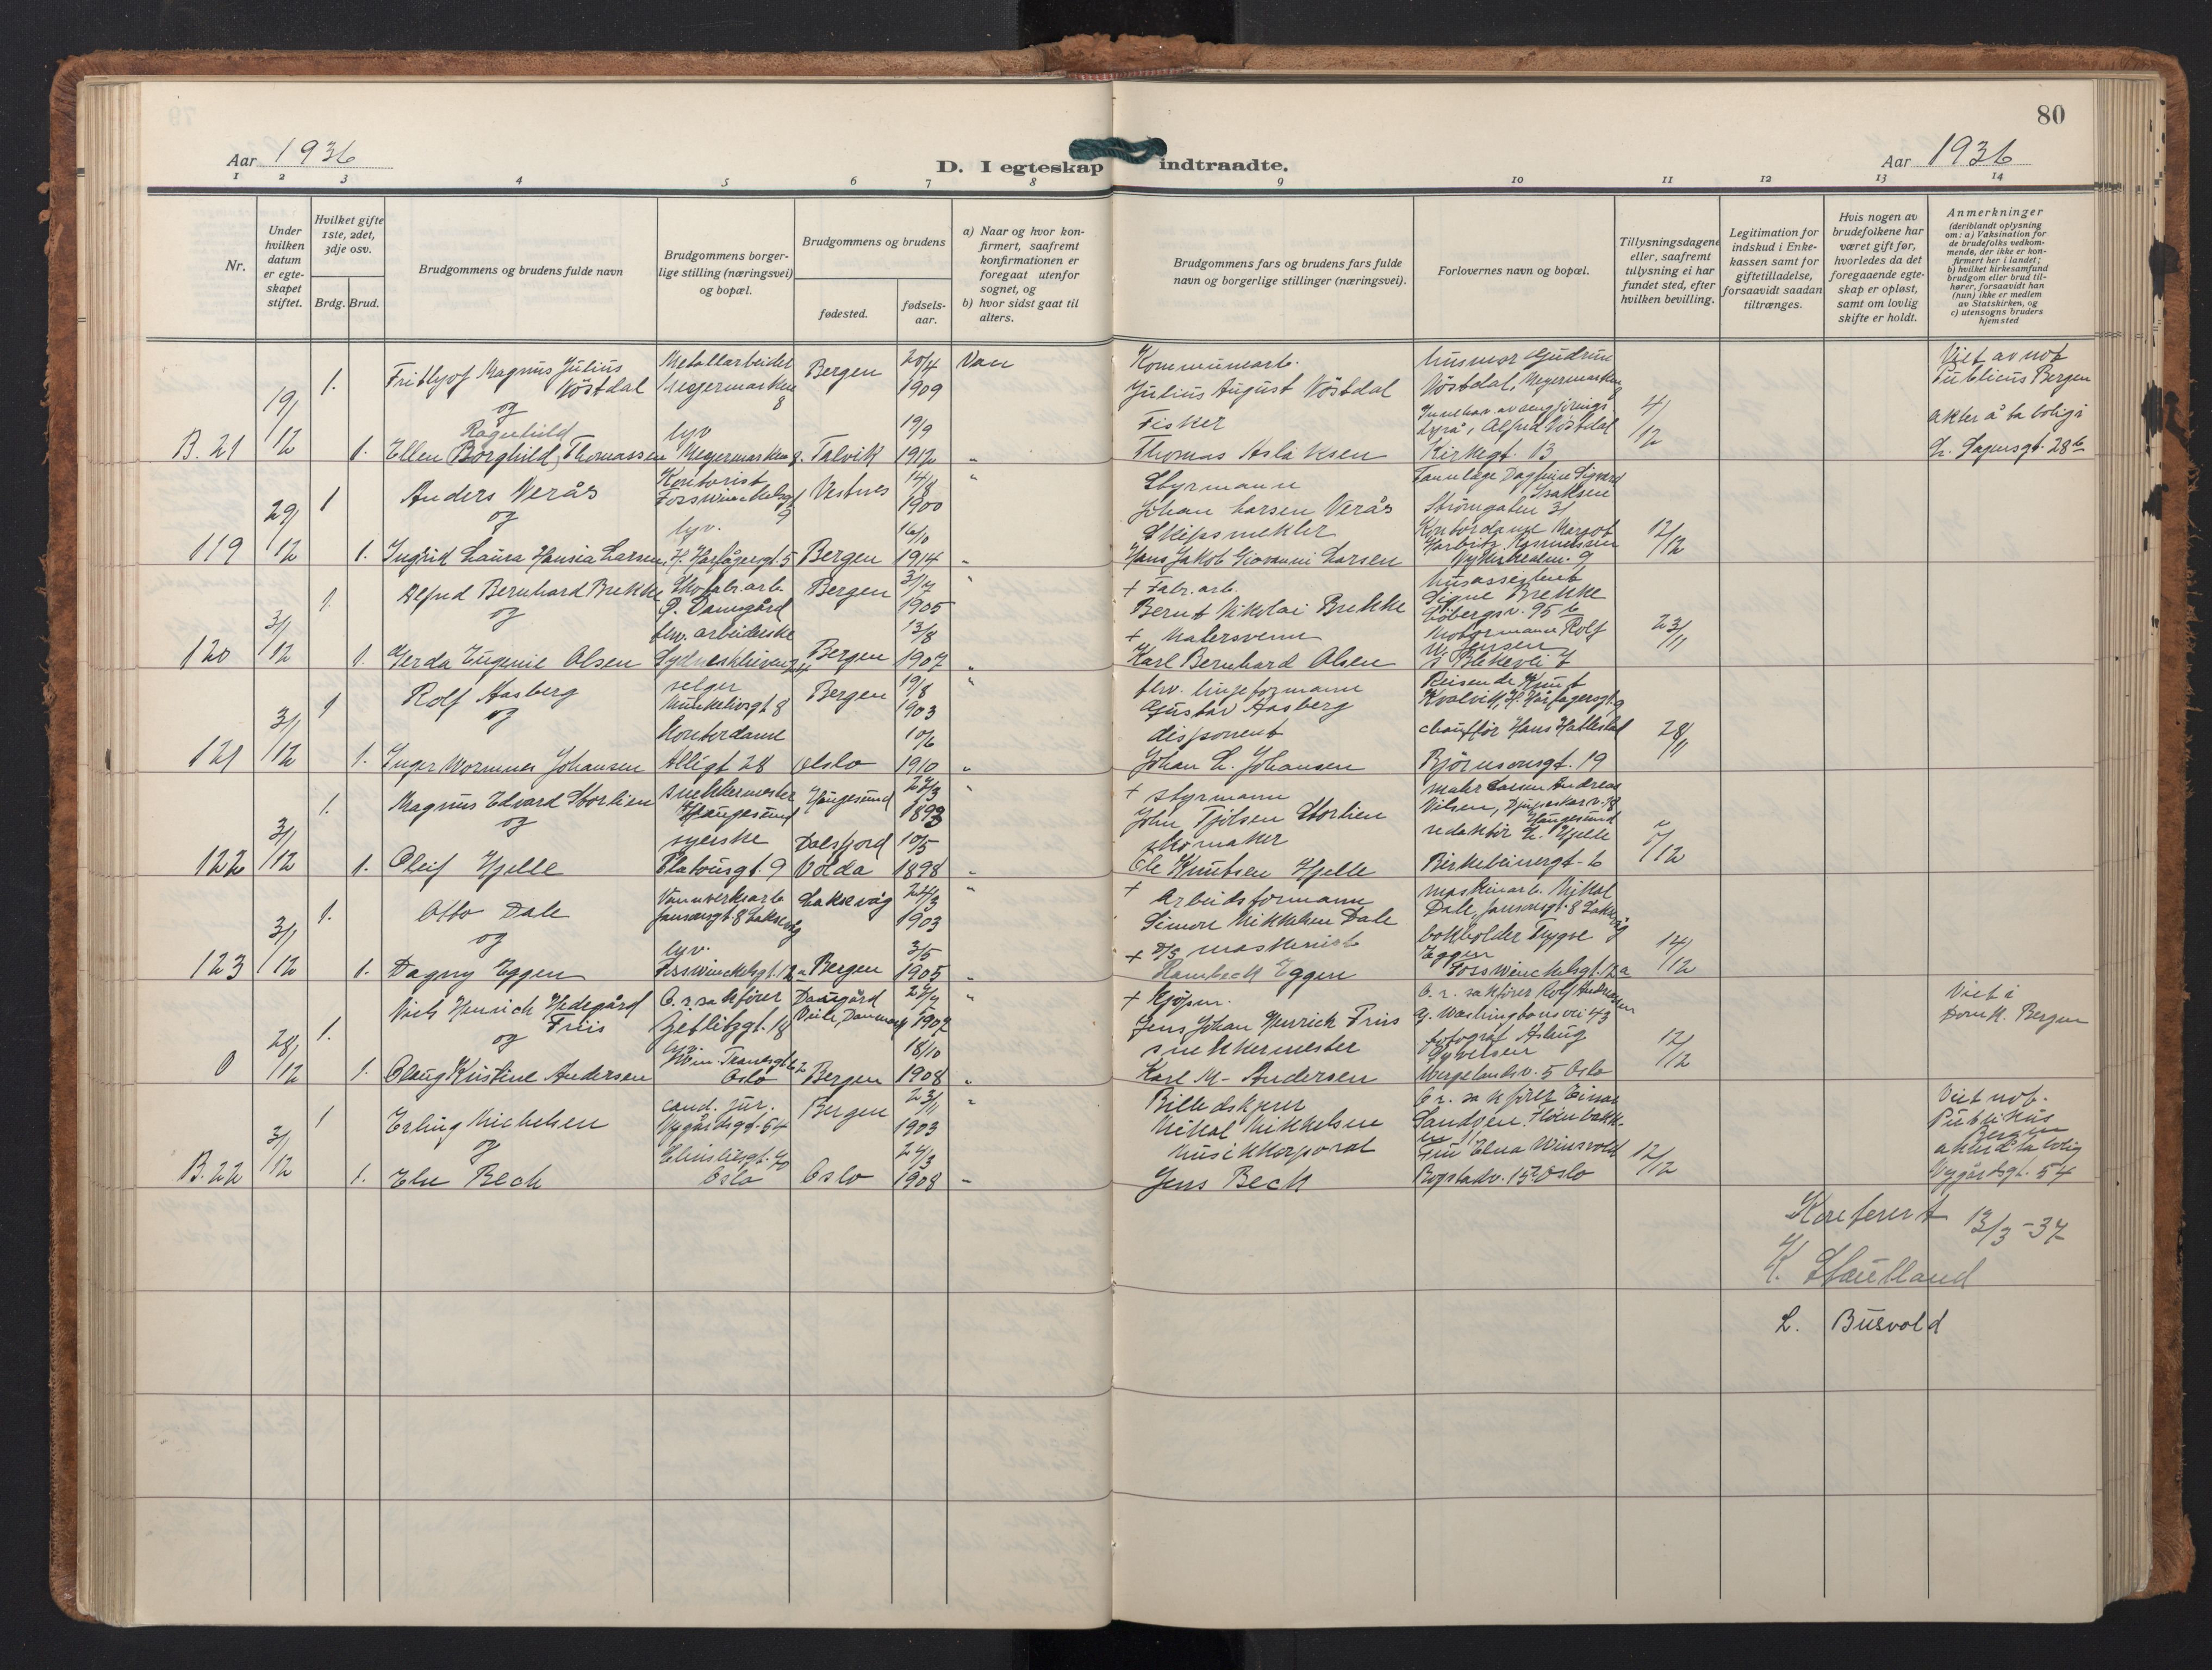 79
80
Aar 1936
D. I egteskap indtraadte.
Aar 1936
1 2 3 4 5 6 7 8 9 10 11 12 13 14
Nr.
Under hvilken datum er egteskapet stiftet.
Hvilket gifte 1ste, 2det, 3dje osv.
Brdg. Brud.
Brudgommens og brudens fulde navn
Brudgommens borgerlige stilling (næringsvei) og bopæl.
Brudgommens og brudens
fødested.
fødselsaar.
a) Naar og hvor konfirmert, saafremt konfirmationen er foregaat utenfor sognet, og
b) hvor sidst gaat til alters.
Brudgommens fars og brudens fars fulde navn og borgerlige stillinger (næringsvei).
Forlovernes navn og bopæl.
Tillysningsdagene eller, saafremt tillysning ei har fundet sted, efter hvilken bevilling.
Legitimation for indskud i Enkekassen samt for giftetilladelse, forsaavidt saadan tiltrænges.
Hvis nogen av brudefolkene har været gift før, hvorledes da det foregaaende egteskap er opløst, samt om lovlig skifte er holdt.
Anmerkninger (deriblandt oplysning om: a) Vaksination for de brudefolks vedkommende, der ikke er konfirmert her i landet; b) hvilket kirkesamfund brudgom eller brud tilhører, forsaavidt han (hun) ikke er medlem av Statskirken, og c) utensogns bruders hjemsted
B. 21 19/12 1. Frithjof Magnus Julius Vöstdal Metallarbeider Meyermarken 8 Bergen 20/4 1909
Kommunearb. Julius August Vöstdal
husmor Gudrun Vöstdal, Meyermarken
Viet av not. Publicus Bergen
og
1. Ellen Borghild Ragnhild Thomassen Meyermarken 8. Talvik 19/9 1912 "
Fisker Thomas Aslaksen
Alfred Vöstdal Kirkegt. 13
4/12
akter å ta bolig i
119 29/12 1 Anders Verås Kontorist Fosswinckelsgt 9 Vestnes 14/8 1900 "
Styrmann Johan Larsen Verås
Tannlæge Dagfinn Sigvard Isaksen Strömgaten 31
og
1. Ingrid Laura Hansia Larsen H. Hårfågersgt. 5 Bergen 16/10 1914 "
Skipsmekler Hans Jakob Giovanni Larsen
Kontordame Margot Rasmussen
12/12
120 3/12 1. Alfred Bernhard Brekke Skofabr.arb. D. Damsgård Bergen 3/7 1905 "
+ Fabr.arb. Bernt Nikolai Brekke
husassistent Signe Brekke
og
1. Gerda Eugenie Olsen arbeiderske Bergen 13/8 1907 "
+ Malersvenn Karl Bernhard Olsen
Motormann Rolf Jensen
23/11
121 3/12 1 Rolf Aasberg selger Munkelivsgt 8 Bergen 19/8 1903 "
linjeformann Gustav Aasberg
Reisende Knut Kvalvik, H. Hårfagersgt. 9
og
1. Inger Wormnes Johansen Kontordame Allégt 28 Oslo 10/6 1910 "
disponent Johan L. Johansen
chauffør Hans Hatlestad Bjørnsonsgt. 19
28/11
122 3/12 1. Magnus Edvard Storlien snekkermester Haugesund Haugesund 27/3 1893 "
+ styrmann John Tjölsen Storlien
Nilsen, Haugesund
og
1. Oleif Hjelle syerske Platousgt. 9 Dalsfjord Volda 10/5 1898 "
skomaker Ole Knutsen Hjelle
redaktör L. Hjelle Birkebeinergt. 6
5/12
123 3/12 1. Otto Dale Vannverksarb. Jansonsgt 8 Laksevåg Laksevåg 24/3 1903 "
+ Arbeidsformann Simon Mikkelsen Dale
maskinarb. Mikal Dale, Jansonsgt. 8 Laksevåg
og
1. Dagny Eggen Fosswinckelsgt. 12a Bergen 3/5 1905 "
+ D/S maskinist Eggen
bokholder Trygve Eggen Fosswinckelsgt. 12a
14/12
0 28/12 1. Niels Henrich Hedegård Friis O.r.sakfører Zetlitzgt. 18 Daugård Veile, Danmark 27/4 1907 "
+ Kjöpm. Jens Johan Henrich Friis
O.r. sakförer Rolf Andressen G. Washingtonsvei 43
Viet i Domk. Bergen
og
1. Olaug Kristine Andersen Oslo Bergen 18/10 1908 "
snekkermester Karl M. Andersen
fotograf Aslaug Syvertsen Wergelandsv. 5 Oslo
12/12
B. 22 3/12 1 Erling Michelsen cand. jur. Nygårdsgt. 54 Bergen 23/11 1903 "
Billedskjærer Mikal Mikkelsen
O.r. sakfører Einar Sandven
Viet not. Publikus Bergen
og
1. Else Bech Oslo Oslo 27/3 1908 "
Musikkorporal Jens Bech
Fru Elna Winsvold Bogstadv. Oslo
12/12
akter å ta bolig Nygårdsgt. 54
Konferert 13/3-37
K. Støulland
L. Busvold